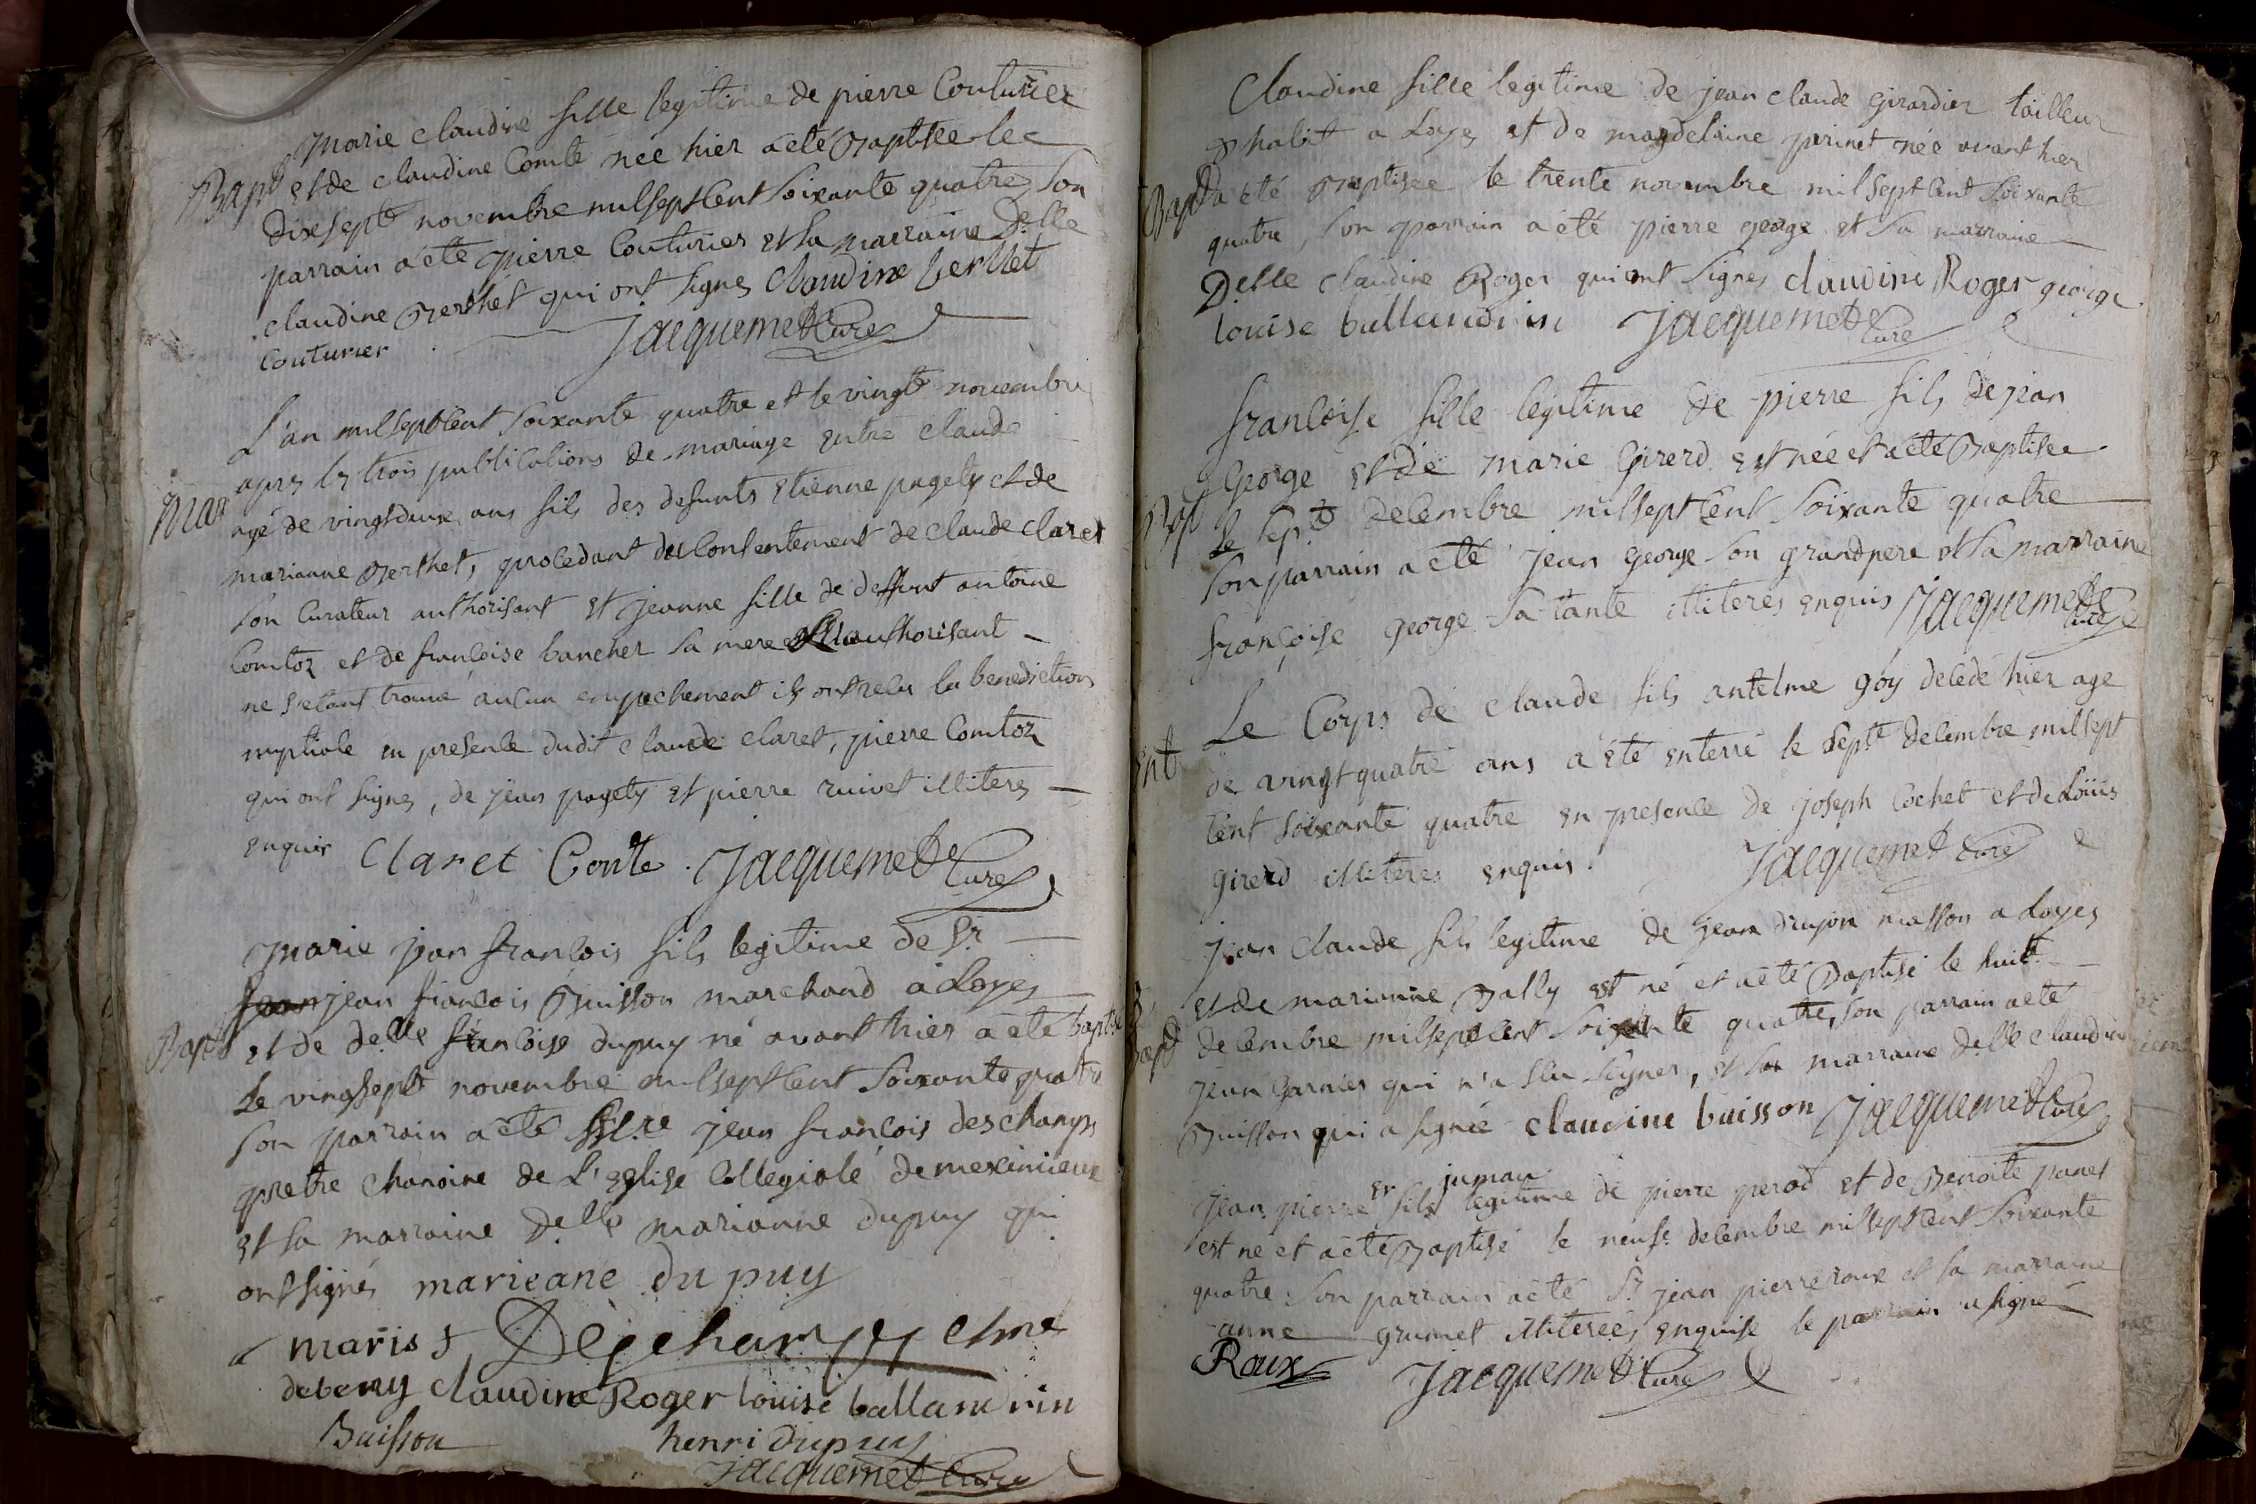 Marie Claudine fille legitime de pierre Couturier
Bapt et de claudine Comte née hier a été Baptisée le
dixsept novembre milseptcent soixante quatre, son
parrain a été pierre Couturier et sa marraine D.lle
claudine Berthet qui ont signes Claudine berthet
Couturier Jacquemet Curé
L'an milseptcent soixante quatre et le vingt novembre
apres les trois publications de mariage entre claude
Mar agé de vingtdeux ans fils des defunts Etienne pagety et de
marianne Berthet, procedant du Consentement de Claude Claret
son Curateur authorisant et jeanne fille de deffunt antoine
Comtoz et de françoise bancher sa mere authorisant
ne s'etant trouvé aucun empechement ils ont recu la benediction
nuptiale en presence dudit claude claret, pierre Comtoz
qui ont signes, de jean pagety et pierre ruivet illiteres
enquis Claret Conte Jacquemet Curé
Marie jean françois fils legitime de S.r
jean jean françois Buisson marchand a Loyes
Bapt et de de.lle françoise dupuy né avant hier a été bapt.sé
Le vingtsept novembre milseptcent soixante quatre
son parrain a été jean françois deschamps
pretre chanoine de L'Eglise Collegiale de meximieux
et sa marraine De.lle marianne dupuy qui
ont signés marieane du puy
marist Dèschamps chne
debeny claudine Roger louise ballandrin
Buisson henri Dupuy
Jacquemet Curé
Claudine fille legitime de jean claude Girardier tailleur
d'habit a Loyes et de magdelaine perinet née avant hier
Bapt a été Baptisée le trente novembre milseptcent soixante
quatre, son parrain a été pierre george et sa marraine
D.elle claudine Roger qui ont signes claudine Roger george
louise ballandrin Jacquemet Curé
françoise fille legitime de pierre fils de jean
George et de marie Girerd est née et a été Baptisée
Bapt le sep.t decembre milseptcent soixante quatre
son parrain a été jean George son grandpere et sa marraine
françoise george sa tante illiterés enquis Jacquemet Curé
Le Corps de claude fils antelme goy decedé hier agé
Ent de vingtquatre ans a été enterré le sept decembre milsept
cent soixante quatre en presence de joseph Cochet et de Loüis
girerd illiteres enquis. Jacquemet Curé
jean Claude fils legitime de jean drujon masson a Loyes
et de marianne Bally est né et a été Baptisé le huit
Bapt decembre milseptcent soixante quatre, son parrain a été
jean Garnier qui n'a sçu signer, et sa marraine de.lle claudine
Buisson qui a signée claudine buisson Jacquemet Curé
er jumau
jean pierre fils legitime de pierre perod et de Benoite panet
est né et a été Baptisé le neuf decembre milseptcent soixante
quatre son parrain a été S.r jean pierre roux et sa marraine
anne grumet illiterée, enquise le parrain a signé
Roux Jacquemet Curé